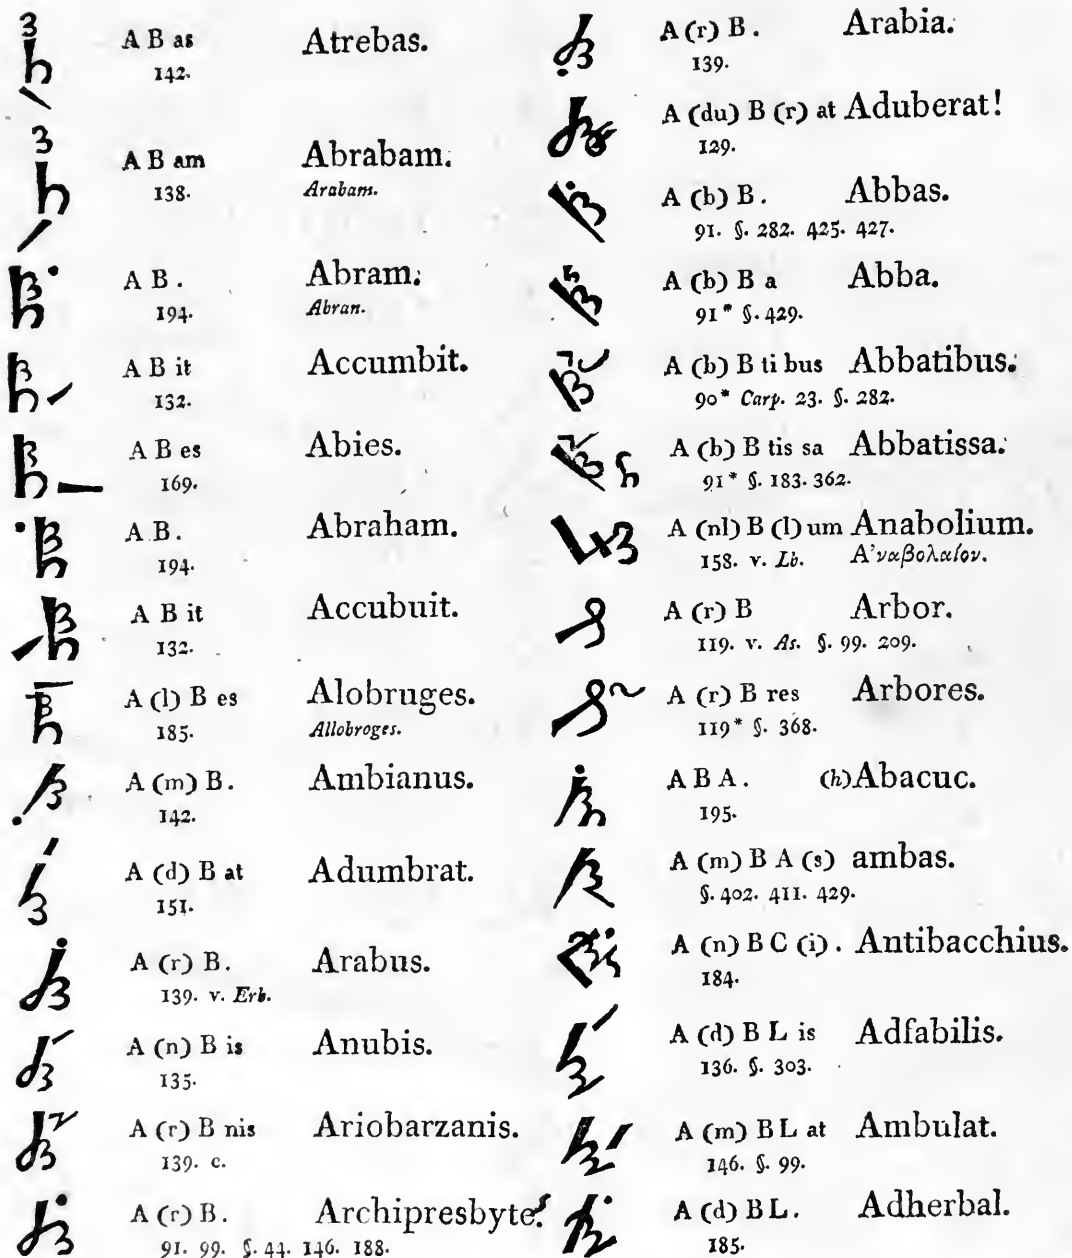 A B as Atrebas.
142.
A B am Abrabam.
138. Arabam.
A B . Abram.
194. Abran.
A B it Accumbit.
132.
A B es Abies.
169.
A B. Abraham.
194.
A B it Accubuit.
132.
A (l) B es Alobruges.
185. Allobroges.
A (m) B . Ambianus.
142.
A (d) B at Adumbrat.
151.
A (r) B. Arabus.
139. v. Erb.
A (n) B is Anubis.
135.
A (r) B nis Ariobarzanis.
139. c.
A (r) B. Archipresbyter.
91. 99. §. 44. 146. 188.
A (r) B . Arabia.
139.
A (du) B (r) at Aduberat!
129.
A (b) B. Abbas.
91. §. 282. 425. 427.
A (b) B a Abba.
91* §. 429.
A (b) B ti bus Abbatibus.
90* Carp. 23. §. 282.
A (b) B tis sa Abbatissa.
91* §. 183. 362.
A (nl) B (l) um Anabolium.
158. v. Lb. Ἀναβολαίον.
A (r) B Arbor.
119. v. As. §. 99. 209.
A (r) B res Arbores.
119* §. 368.
A B A . (h)Abacuc.
195.
A (m) B A (s) ambas.
§. 402. 411. 429.
A (n) B C (i) . Antibacchius.
184.
A (d) B L is Adfabilis.
136. §. 303.
A (m) B L at Ambulat.
146. §. 99.
A (d) B L . Adherbal.
185.